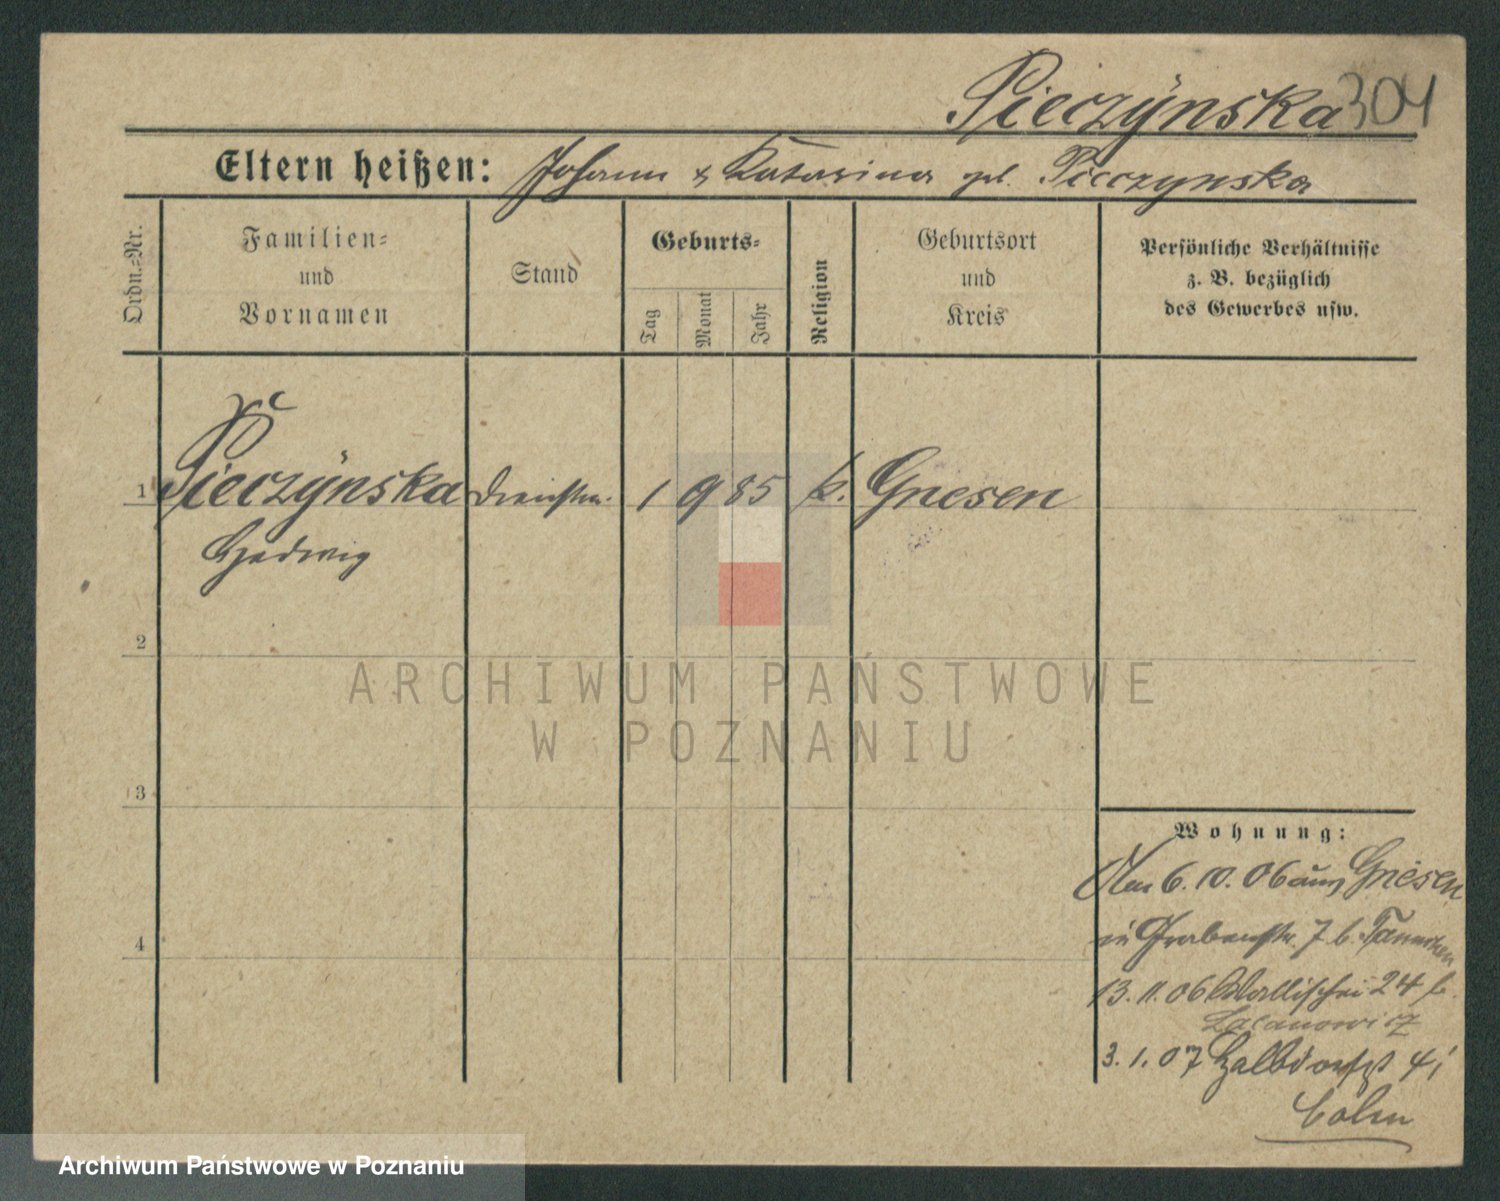 Pieczÿnska 304
Eltern heißen: Johann & Katarina gb. Pieczynska
Ordn.=Nr.
Familien=
und
Vornamen
Stand
Geburts=
Tag
Monat
Jahr
Religion
Geburtsort
und
Kreis
Persönliche Verhältnisse
z. B. bezüglich
des Gewerbes usw.
1 Pieczÿnska Dienstm. 1 9 85 k. Gnesen
Hedwig
2
3
4
Wohnung:
Am 6. 10. 06 aus Gnesen
in Grabenstr 7 b.
13. 11. 06 Wallischei 24 b.
3. 1. 07 Halbdorfst 4
ARCHIWUM PAŃSTWOWE
W POZNANIU
Archiwum Państwowe w Poznaniu